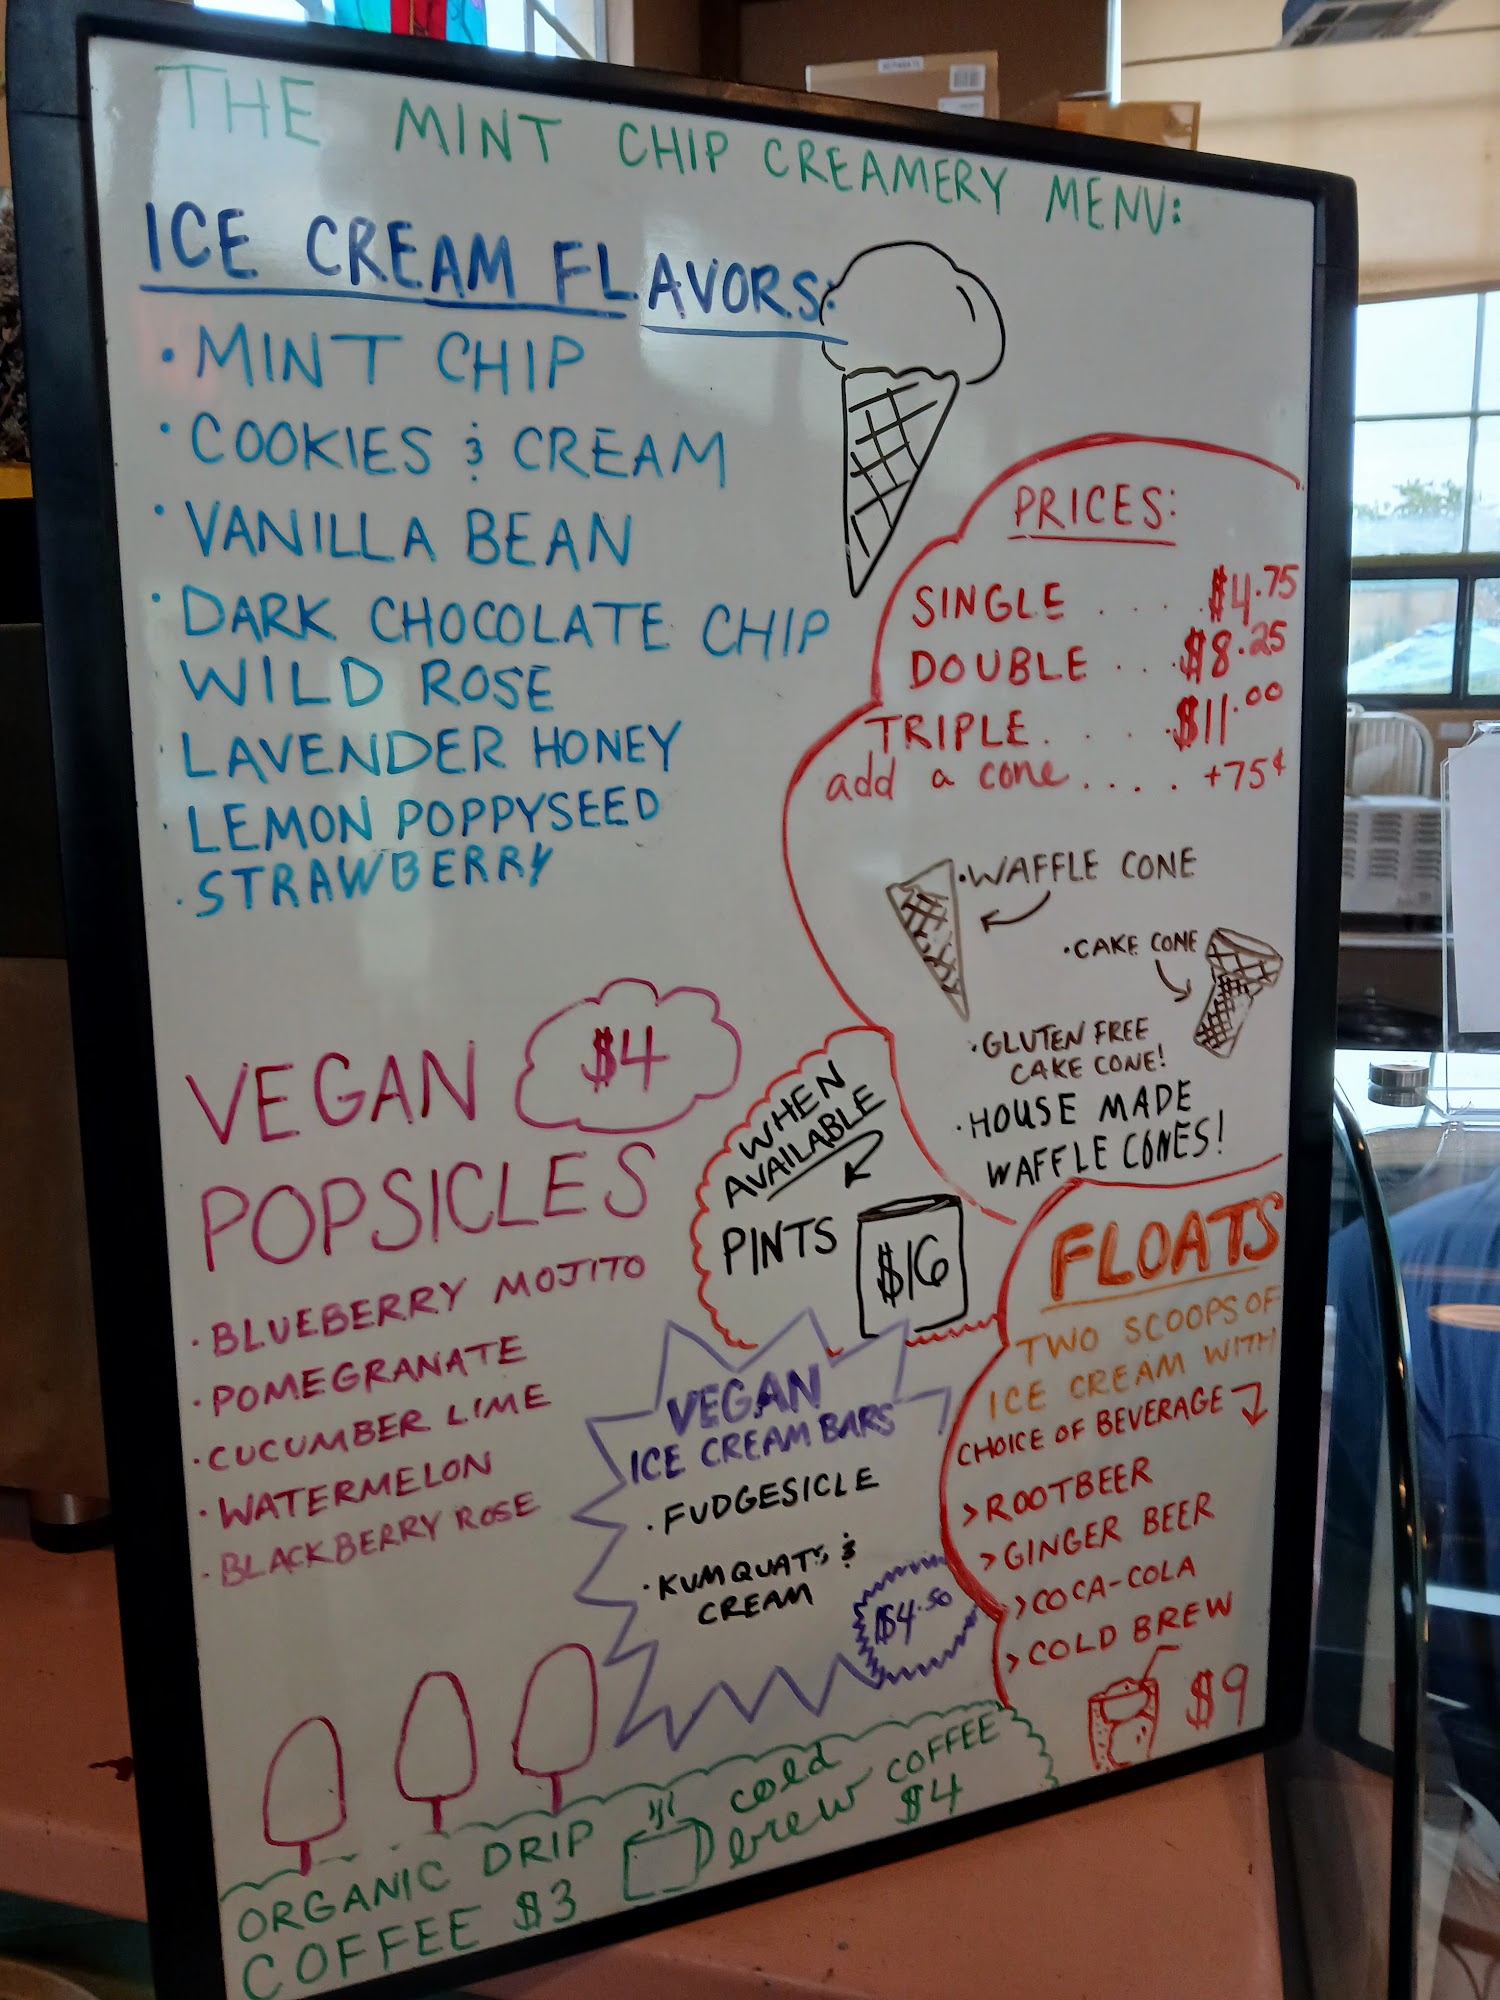 THE MINT CHIP CREAMERY MENU:
ICE CREAM FLAVORS:
• MINT CHIP
• COOKIES & CREAM
• VANILLA BEAN
• DARK CHOCOLATE CHIP
WILD ROSE
• LAVENDER HONEY
• LEMON POPPYSEED
• STRAWBERRY
PRICES:
SINGLE .... $4.75
DOUBLE ... $8.25
TRIPLE..... $11.00
add a cone.... +75¢
• WAFFLE CONE
• CAKE CONE
• GLUTEN FREE
CAKE CONE!
• HOUSE MADE
WAFFLE CONES!
VEGAN $4
POPSICLES
• BLUEBERRY MOJITO
• POMEGRANATE
• CUCUMBER LIME
• WATERMELON
• BLACKBERRY ROSE
WHEN
AVAILABLE
PINTS $16
VEGAN
ICE CREAM BARS
• FUDGESICLE
• KUMQUATS &
CREAM
$4.50
FLOATS
TWO SCOOPS OF
ICE CREAM WITH
CHOICE OF BEVERAGE
>ROOTBEER
>GINGER BEER
>COCA-COLA
>COLD BREW
$9
ORGANIC DRIP
COFFEE $3
cold
brew COFFEE
$4